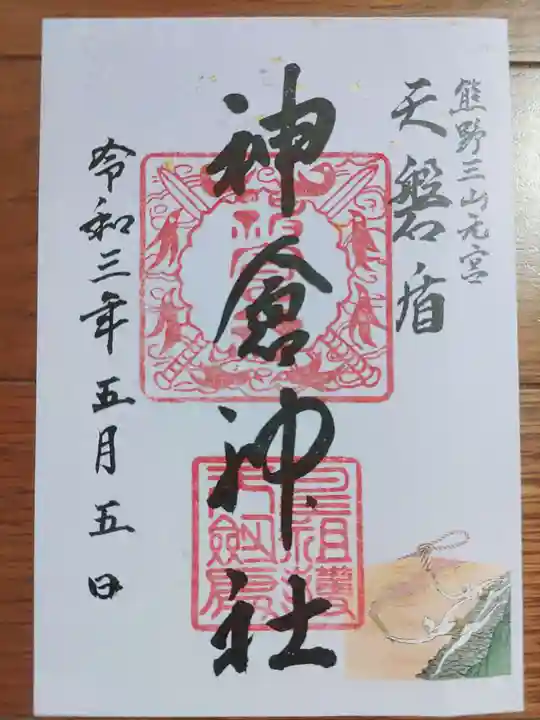 熊野三山元宮
天磐盾
神倉神社
令和三年五月五日